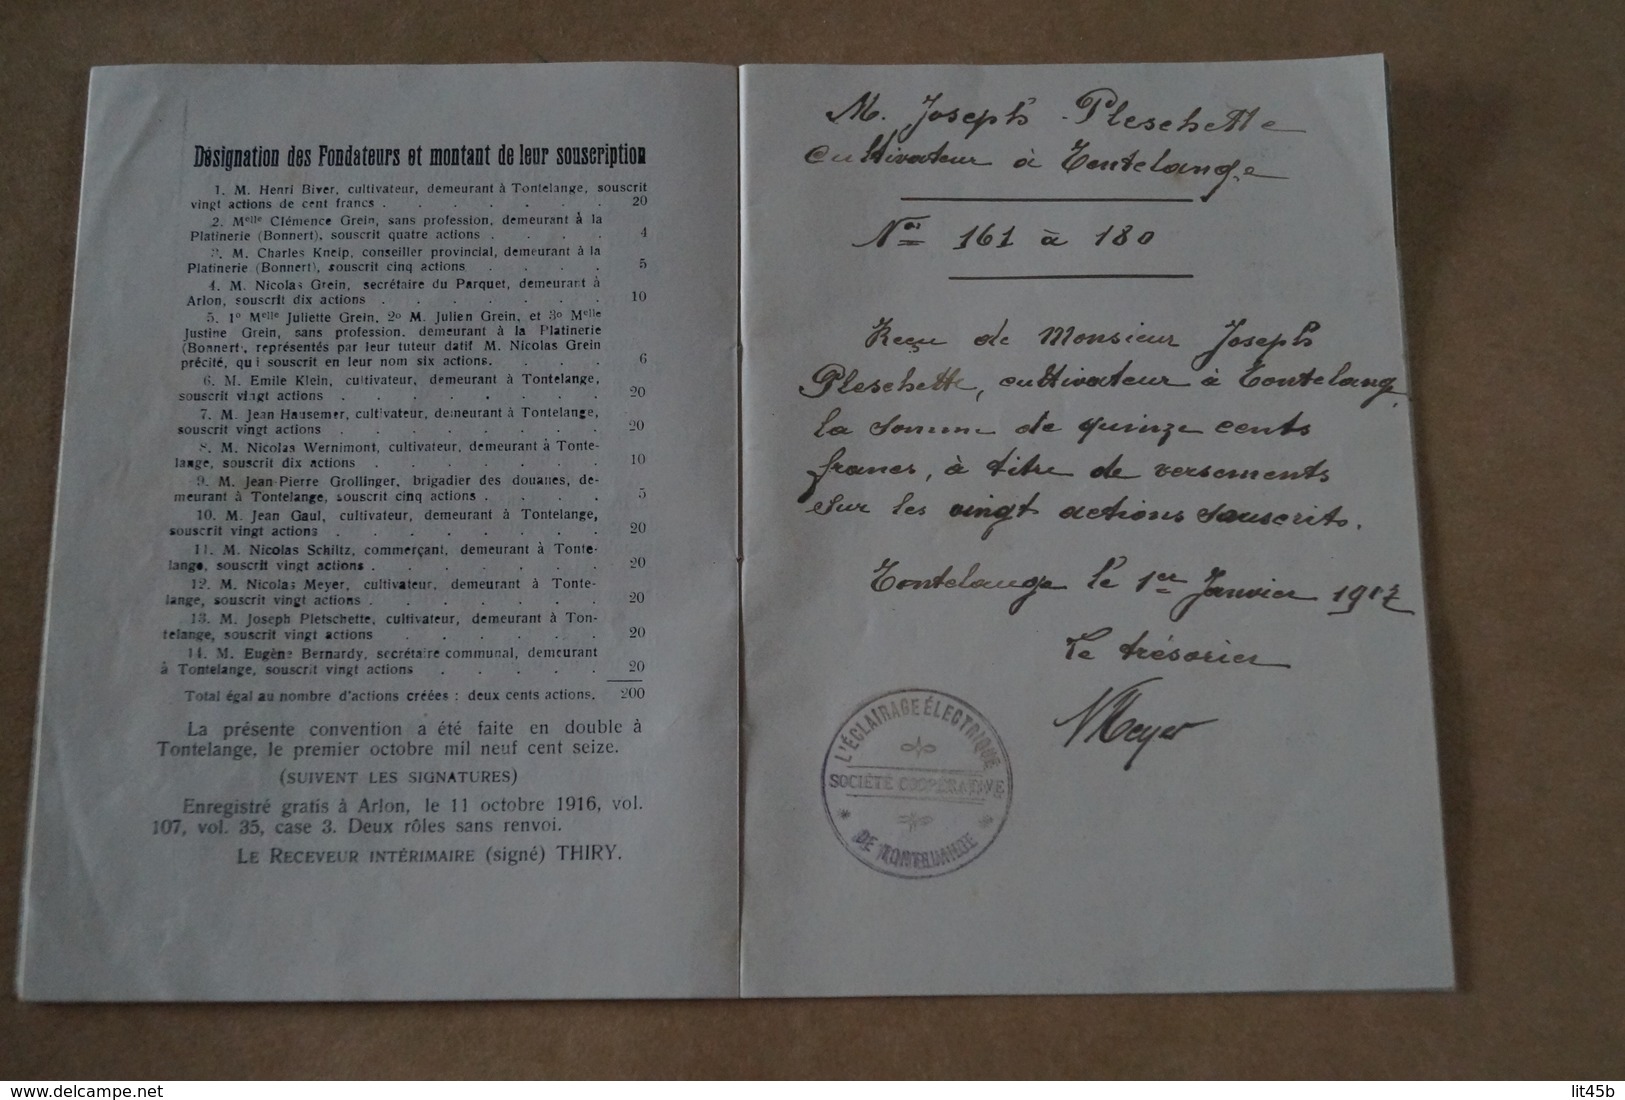 Désignation des Fondateurs et montant de leur souscription
1. M. Henri Biver, cultivateur, demeurant à Tontelange, souscrit
vingt actions de cent francs . . . . . . . 20
2. Melle Clémence Grein, sans profession, demeurant à la
Platinerie (Bonnert), souscrit quatre actions . . . . 4
3. M. Charles Kneip, conseiller provincial, demeurant à la
Platinerie (Bonnert), souscrit cinq actions . . . . 5
4. M. Nicolas Grein, secrétaire du Parquet, demeurant à
Arlon, souscrit dix actions . . . . . . . 10
5. 1o Melle Juliette Grein, 2o M. Julien Grein, et 3o Melle
Justine Grein, sans profession, demeurant à la Platinerie
(Bonnert, représentés par leur tuteur datif M. Nicolas Grein
précité, qui souscrit en leur nom six actions. . . . 6
6. M. Emile Klein, cultivateur, demeurant à Tontelange,
souscrit vingt actions . . . . . . . 20
7. M. Jean Hausemer, cultivateur, demeurant à Tontelange,
souscrit vingt actions . . . . . . . 20
8. M. Nicolas Wernimont, cultivateur, demeurant à Tonte-
lange, souscrit dix actions . . . . . . 10
9. M. Jean-Pierre Grollinger, brigadier des douanes, de-
meurant à Tontelange, souscrit cinq actions . . . . 5
10. M. Jean Gaul, cultivateur, demeurant à Tontelange,
souscrit vingt actions . . . . . . . 20
11. M. Nicolas Schiltz, commerçant, demeurant à Tonte-
lange, souscrit vingt actions . . . . . . 20
12. M. Nicolas Meyer, cultivateur, demeurant à Tonte-
lange, souscrit vingt actions . . . . . . 20
13. M. Joseph Pletschette, cultivateur, demeurant à Ton-
telange, souscrit vingt actions . . . . . . 20
14. M. Eugène Bernardy, secrétaire communal, demeurant
à Tontelange, souscrit vingt actions . . . . . 20
Total égal au nombre d'actions créées : deux cents actions. 200
La présente convention a été faite en double à
Tontelange, le premier octobre mil neuf cent seize.
(SUIVENT LES SIGNATURES)
Enregistré gratis à Arlon, le 11 octobre 1916, vol.
107, vol. 35, case 3. Deux rôles sans renvoi.
LE RECEVEUR INTÉRIMAIRE (signé) THIRY.
M. Joseph Pleschette
cultivateur à Tontelange
Nos 161 à 180
Reçu de Monsieur Joseph
Pleschette, cultivateur à Tontelang
la somme de quinze cents
francs, à titre de versements
sur les vingt actions souscrits.
Tontelange le 1er Janvier 1917
Le trésorier
N Meyer
L'ÉCLAIRAGE ÉLECTRIQUE
SOCIÉTÉ COOPÉRATIVE
* DE TONTELANGE *
delcampe.net
lit45b